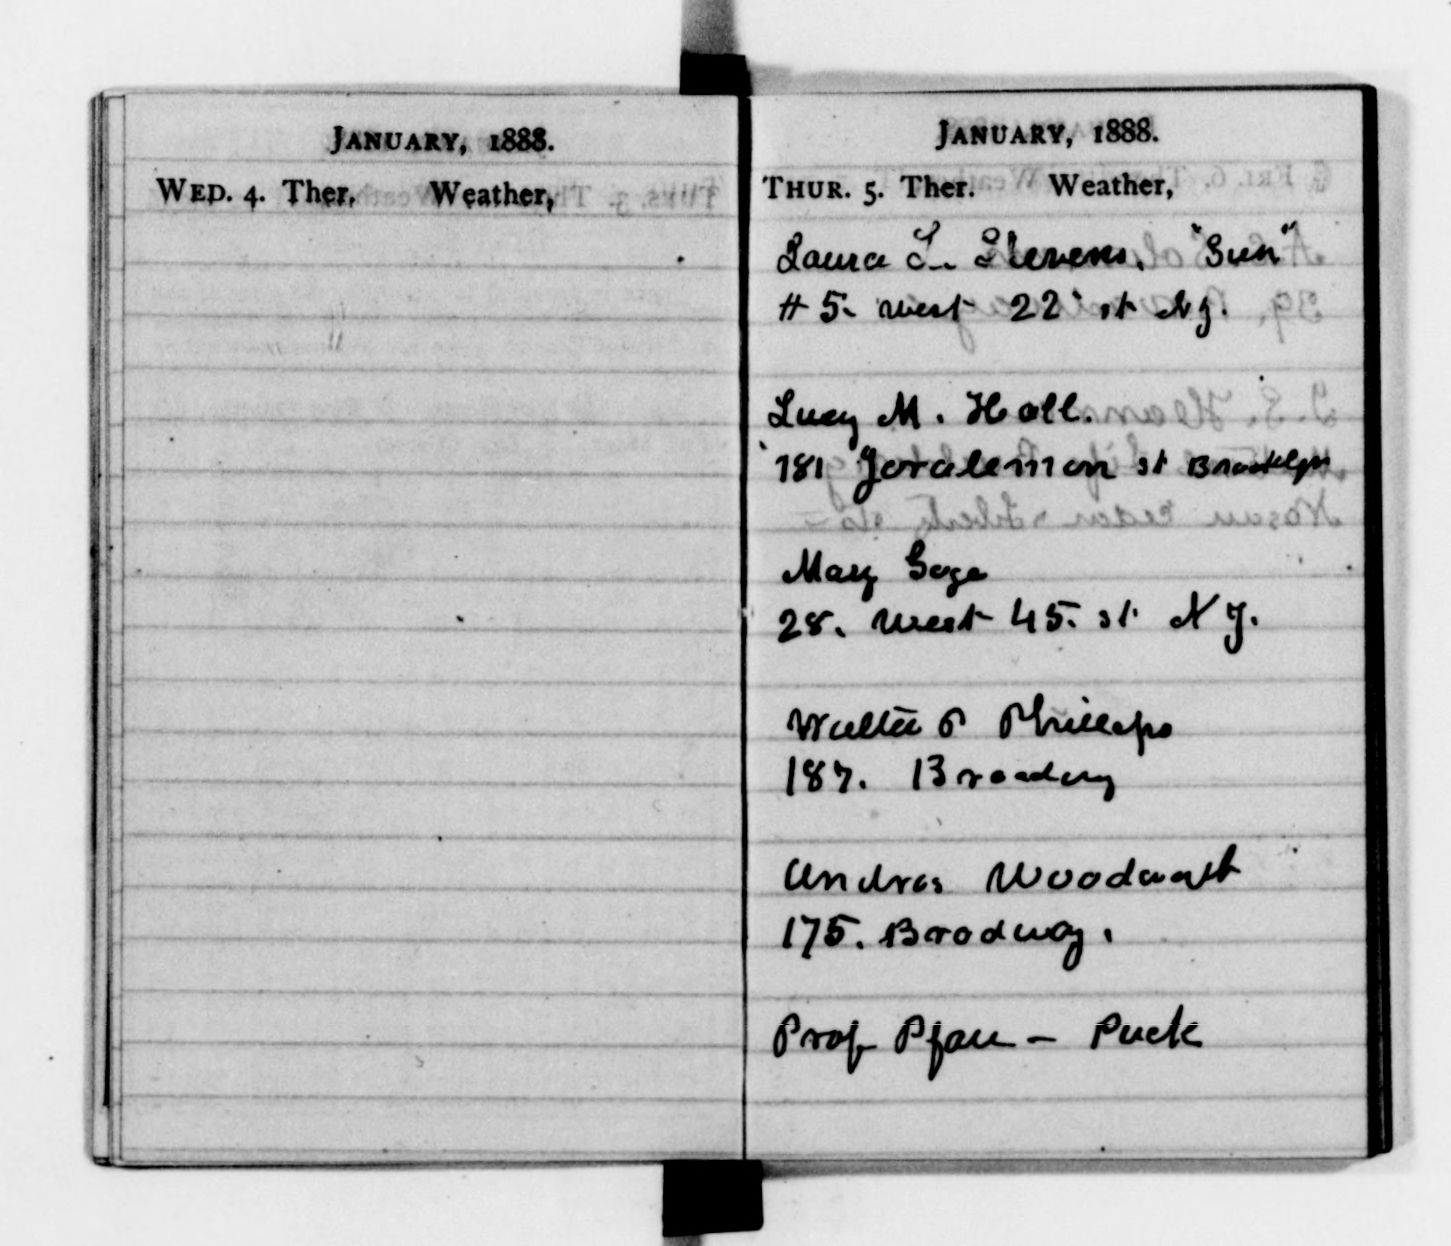 JANUARY, 1888.
WED. 4. Ther. Weather,
JANUARY, 1888.
THUR. 5. Ther. Weather,
Laura L. Stevens. "Sun"
# 5. West 22 st Ny.
Lucy M. Hall.
181 Joralemon st Brooklyn
Mary Gage
28. West 45. st N Y.
Walter P Phillips
187. Broadway
Andros Woodworth
175. Brodway.
Prof Pfau - Puck